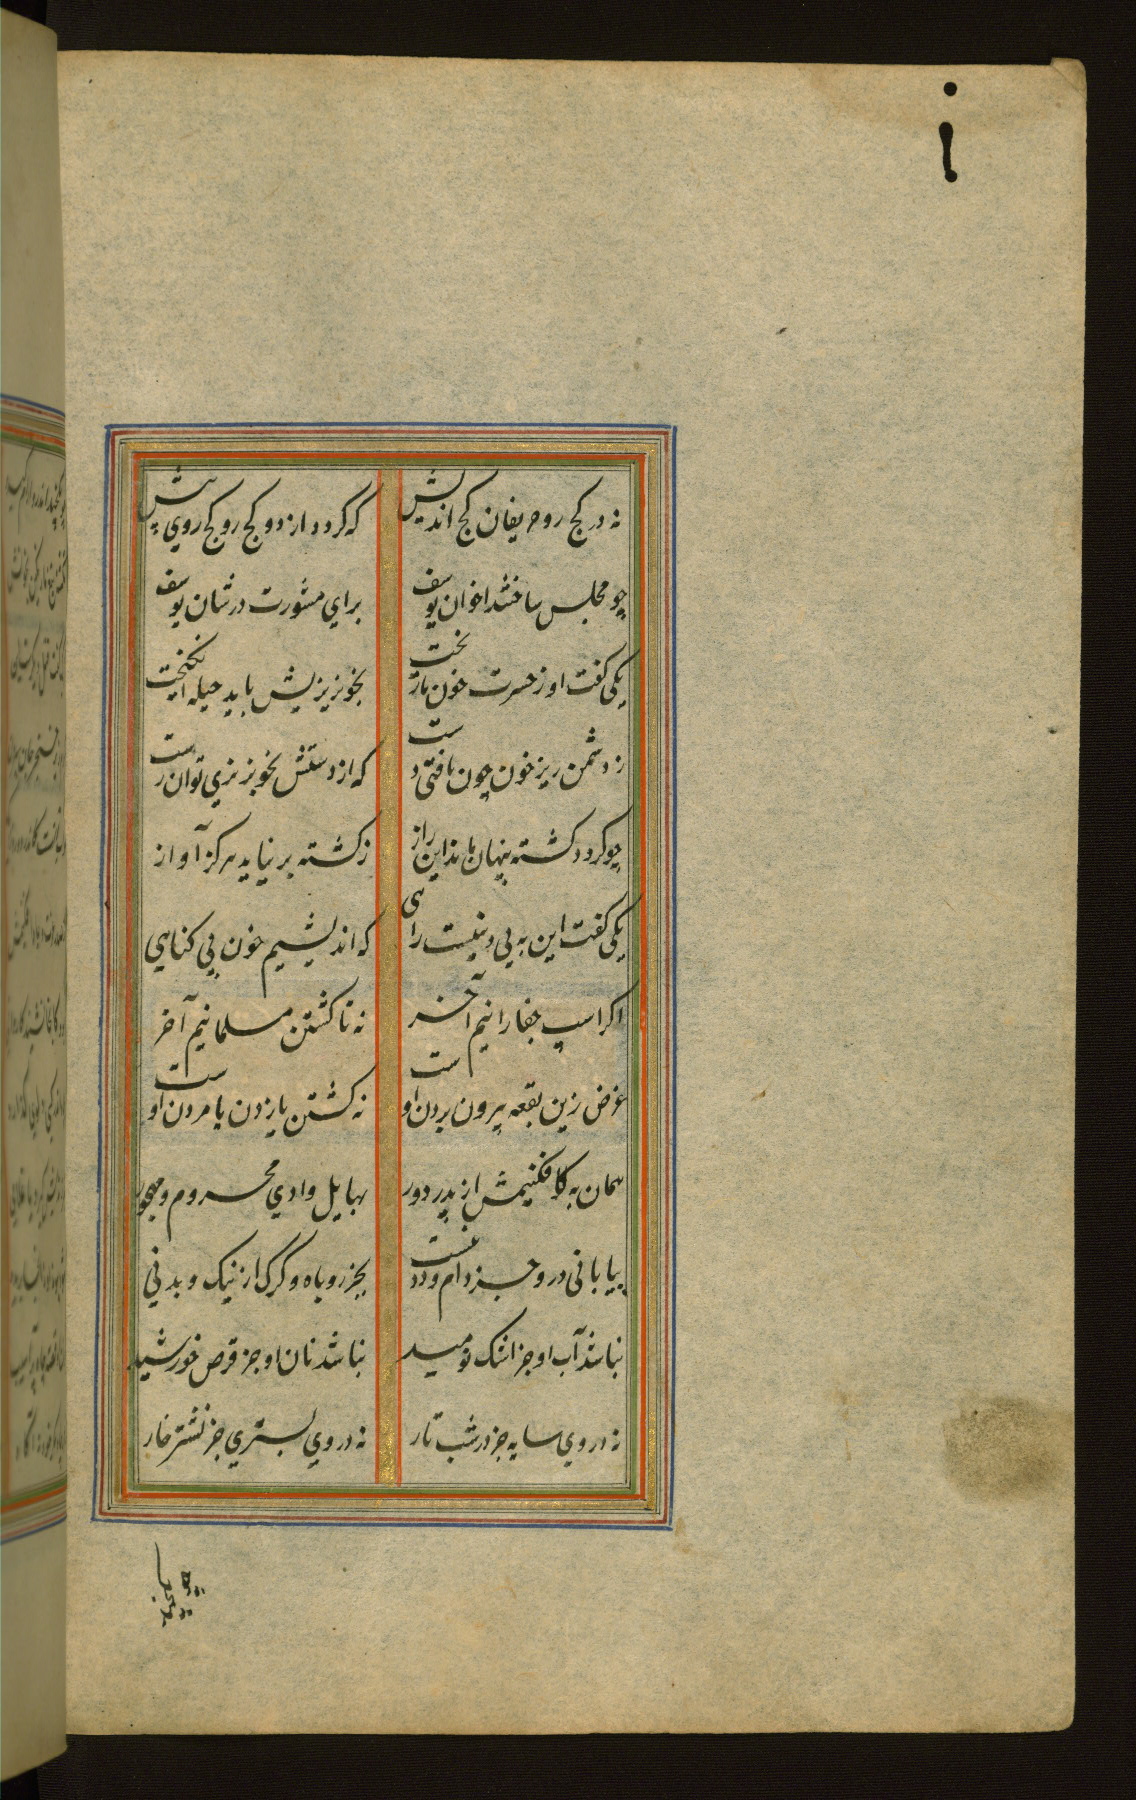 نه در کج رو حریفان کج اندیش
که گردد از دو کج رو کج روی پیش
چو مجلس ساختند اخوان یوسف
برای مشورت در شان یوسف
یکی گفت او ز حسرت خون ما ریخت
بخونریزیش باید حیله انگیخت
ز دشمن ریز خون چون یافتی دست
که از دستش بخونریزی توان رست
چو گردد کشته پنهان ماند این راز
ز کشته بر نیاید هرکز آواز
یکی گفت این به بی دینیست راهی
که اندیشیم خون بی کناهی
اکر اسپ جفا رانیم آخر
نه تا کشتن مسلمانیم آخر
غرض زین بقعه بیرون بردن اوست
نه کشتن یا زدن یا مردن اوست
همان به کافکنیمش از پدر دور
بهایل وادی محروم و مهجور
بیابانی درو جز دام و دد نیست
بجز روباه و گرگ از نیک و بد نی
نباشد آب او جز اشک نومید
نباشد نان او جز قرص خورشید
نه در وی سایه جز در شب تار
نه در وی بستری جز نشتر خار